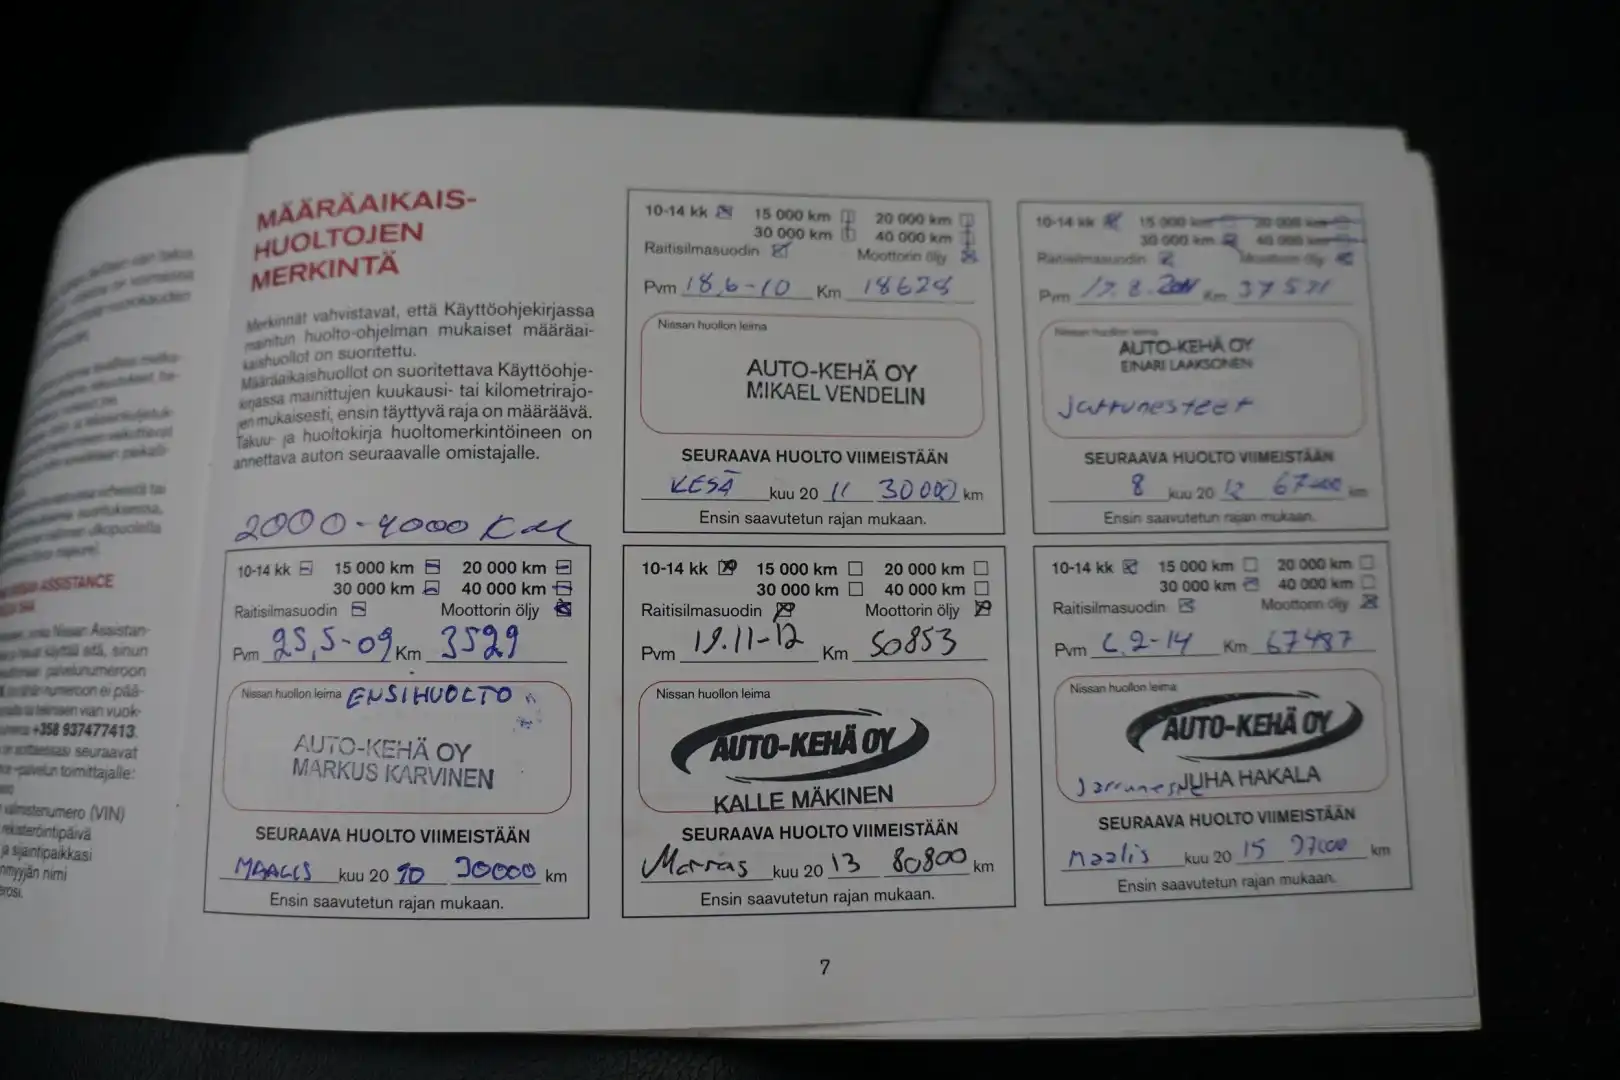 MÄÄRÄAIKAIS-
HUOLTOJEN
MERKINTÄ
Merkinnät vahvistavat, että Käyttöohjekirjassa
mainitun huolto-ohjelman mukaiset määräai-
kaishuollot on suoritettu.
Määräaikaishuollot on suoritettava Käyttöohje-
kirjassa mainittujen kuukausi- tai kilometrirajo-
jen mukaisesti, ensin täyttyvä raja on määräävä.
Takuu- ja huoltokirja huoltomerkintöineen on
annettava auton seuraavalle omistajalle.
2000-4000 KM
10-14 kk 15 000 km 20 000 km
30 000 km 40 000 km
Raitisilmasuodin Moottorin öljy
Pvm 25,5-09 Km 3529
Nissan huollon leima ENSIHUOLTO
AUTO-KEHÄ OY
MARKUS KARVINEN
SEURAAVA HUOLTO VIIMEISTÄÄN
MAALIS kuu 20 10 30000 km
Ensin saavutetun rajan mukaan.
10-14 kk 15 000 km 20 000 km
30 000 km 40 000 km
Raitisilmasuodin Moottorin öljy
Pvm 18,6-10 Km 18628
Nissan huollon leima
AUTO-KEHÄ OY
MIKAEL VENDELIN
SEURAAVA HUOLTO VIIMEISTÄÄN
KESÄ kuu 20 11 30000 km
Ensin saavutetun rajan mukaan.
10-14 kk 15 000 km 20 000 km
30 000 km 40 000 km
Raitisilmasuodin Moottorin öljy
Pvm 17.8.2011 Km 37571
Nissan huollon leima
AUTO-KEHÄ OY
EINARI LAAKSONEN
Jarrunesteet
SEURAAVA HUOLTO VIIMEISTÄÄN
8 kuu 20 12 67000 km
Ensin saavutetun rajan mukaan.
10-14 kk 15 000 km 20 000 km
30 000 km 40 000 km
Raitisilmasuodin Moottorin öljy
Pvm 19.11-12 Km 50853
Nissan huollon leima
AUTO-KEHÄ OY
KALLE MÄKINEN
SEURAAVA HUOLTO VIIMEISTÄÄN
Marras kuu 20 13 80800 km
Ensin saavutetun rajan mukaan.
10-14 kk 15 000 km 20 000 km
30 000 km 40 000 km
Raitisilmasuodin Moottorin öljy
Pvm 6.2-14 Km 67487
Nissan huollon leima
AUTO-KEHÄ OY
Jarruneste JUHA HAKALA
SEURAAVA HUOLTO VIIMEISTÄÄN
Maalis kuu 20 15 97000 km
Ensin saavutetun rajan mukaan.
7
ASSISTANCE
Nissan Assistan-
käyttää sitä, sinun
palvelunumeroon
numeroon ei pää-
teknisen vian vuok-
+358 937477413.
soittaessasi seuraavat
palvelun toimittajalle:
valmistenumero (VIN)
rekisteröintipäivä
ja sijaintipaikkasi
nimi